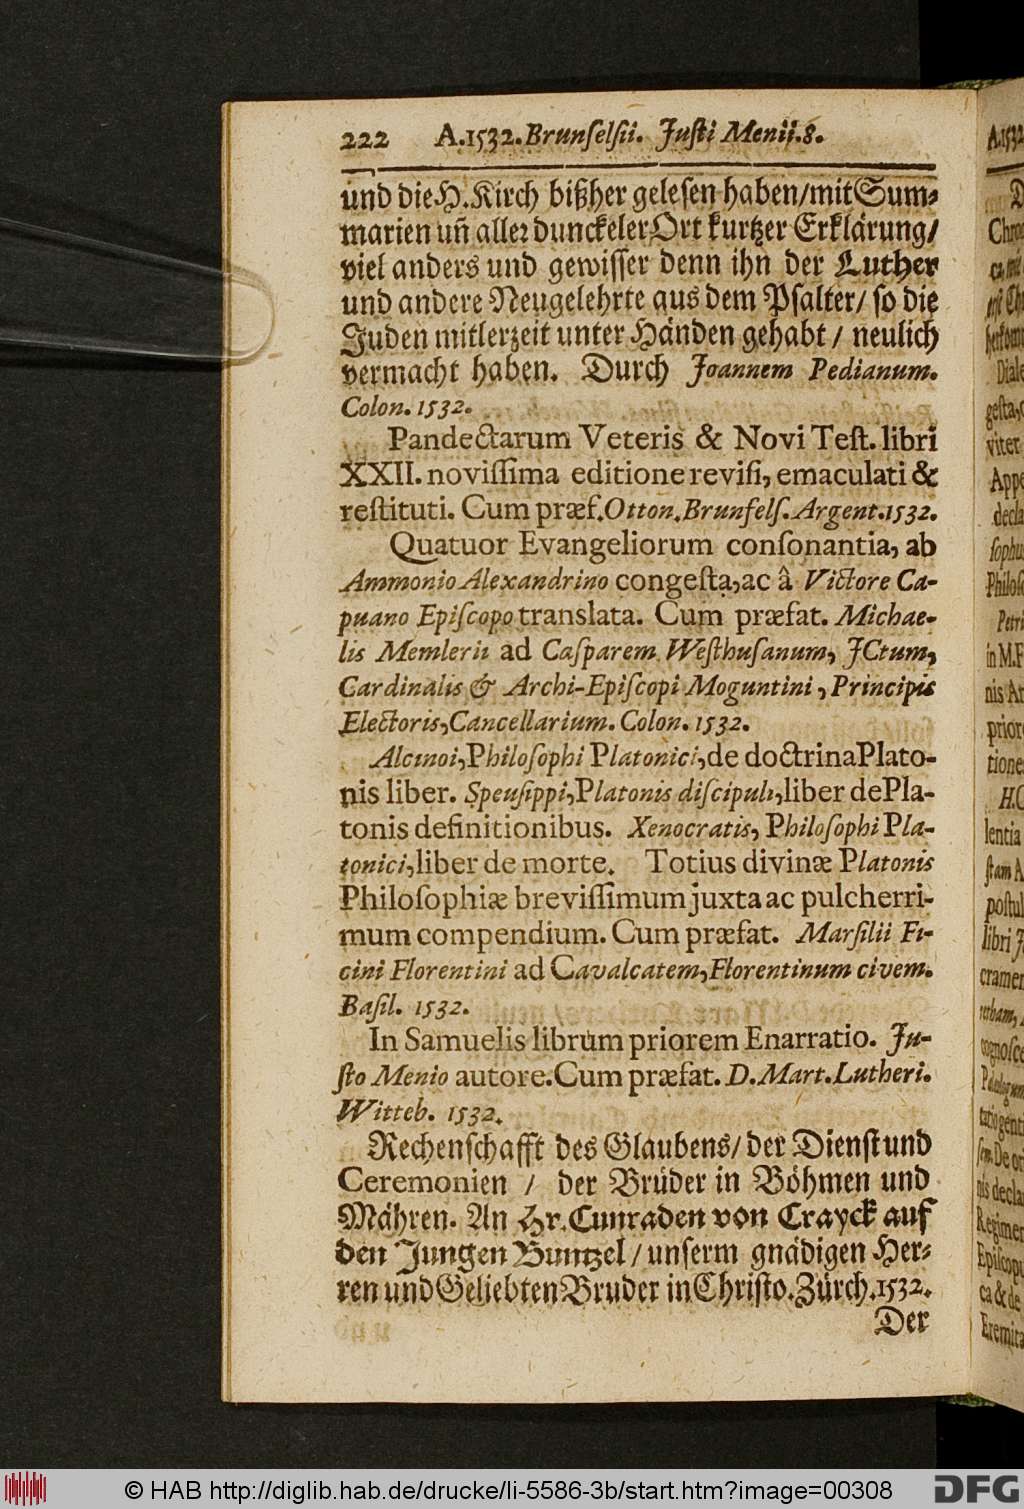 222 A.1532. Brunſelſii. Juſti Menii. 8.
und die H. Kirch bißher geleſen haben/mit Sum⸗
marien uñ aller dunckeler Ort kurtzer Erklärung/
viel anders und gewiſſer denn ihn der Luther
und andere Neugelehrte aus dem Pſalter/ ſo die
Juden mitlerzeit unter Händen gehabt / neulich
vermacht haben. Durch Joannem Pedianum.
Colon. 1532.
Pandectarum Veteris & Novi Teſt. libri
XXII. noviſſima editione reviſi, emaculati &
reſtituti. Cum præf. Otton. Brunfelſ. Argent. 1532.
Quatuor Evangeliorum conſonantia, ab
Ammonio Alexandrino congeſta, ac â Victore Ca-
puano Epiſcopo translata. Cum præfat. Michae-
lis Memlerii ad Caſparem Weſthuſanum, JCtum,
Cardinalis & Archi-Epiſcopi Moguntini, Principis
Electoris, Cancellarium. Colon. 1532.
Alcinoi, Philoſophi Platonici, de doctrina Plato-
nis liber. Speuſippi, Platonis diſcipuli, liber de Pla-
tonis definitionibus. Xenocratis, Philoſophi Pla-
tonici, liber de morte. Totius divinæ Platonis
Philoſophiæ breviſſimum juxta ac pulcherri-
mum compendium. Cum præfat. Marſilii Fi-
cini Florentini ad Cavalcatem, Florentinum civem.
Baſil. 1532.
In Samuelis librum priorem Enarratio. Ju-
ſto Menio autore. Cum præfat. D. Mart. Lutheri.
Witteb. 1532.
Rechenſchafft des Glaubens/ der Dienſt und
Ceremonien / der Brüder in Böhmen und
Mähren. An Hr. Cunraden von Crayck auf
den Jungen Buntzel / unſerm gnädigen Her⸗
ren und Geliebten Bruder in Chriſto. Zürch. 1532.
Der
© HAB http://diglib.hab.de/drucke/li-5586-3b/start.htm?image=00308
DFG